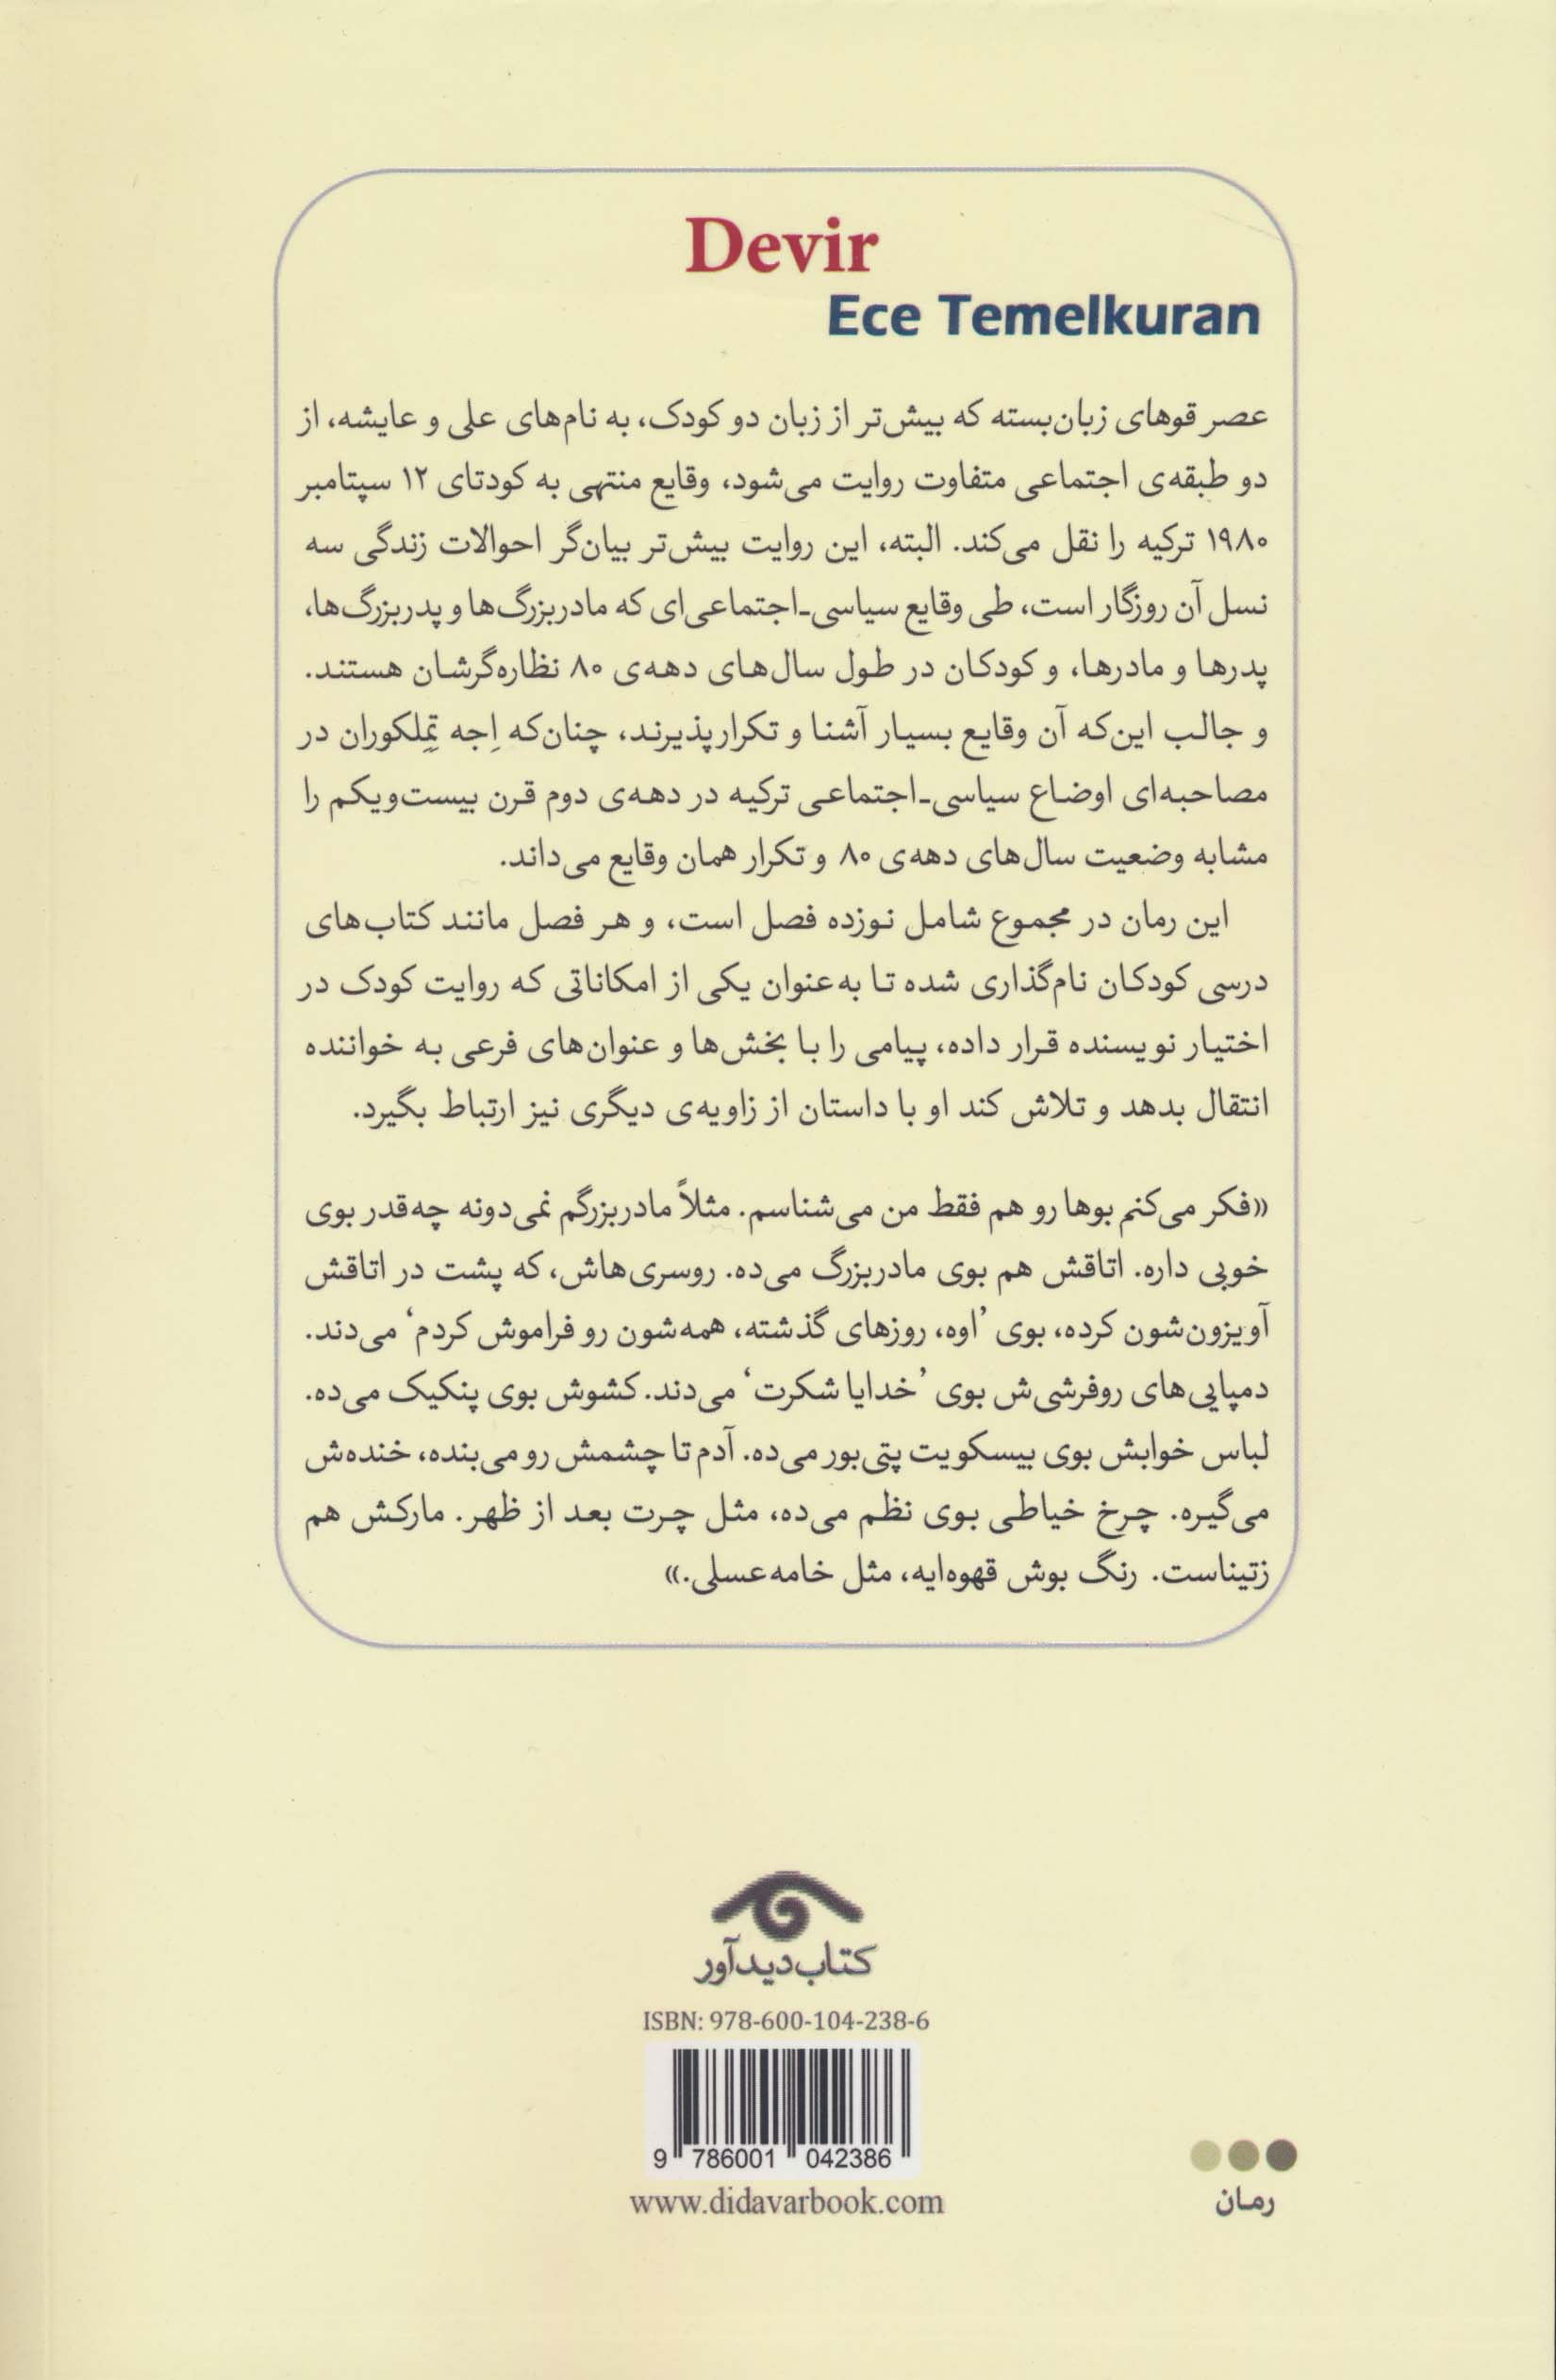 Devir
Ece Temelkuran
عصر قوهای زبان‌بسته که بیش‌تر از زبان دو کودک، به نام‌های علی و عایشه، از
دو طبقه‌ی اجتماعی متفاوت روایت می‌شود، وقایع منتهی به کودتای ۱۲ سپتامبر
۱۹۸۰ ترکیه را نقل می‌کند. البته، این روایت بیش‌تر بیان‌گر احوالات زندگی سه
نسل آن روزگار است، طی وقایع سیاسی‌ـ‌اجتماعی‌ای که مادربزرگ‌ها و پدربزرگ‌ها،
پدرها و مادرها، و کودکان در طول سال‌های دهه‌ی ۸۰ نظاره‌گرشان هستند.
و جالب این‌که آن وقایع بسیار آشنا و تکرارپذیرند، چنان‌که اِجه تِمِلکوران در
مصاحبه‌ای اوضاع سیاسی‌ـ‌اجتماعی ترکیه در دهه‌ی دوم قرن بیست‌ویکم را
مشابه وضعیت سال‌های دهه‌ی ۸۰ و تکرار همان وقایع می‌داند.
این رمان در مجموع شامل نوزده فصل است، و هر فصل مانند کتاب‌های
درسی کودکان نام‌گذاری شده تا به‌عنوان یکی از امکاناتی که روایت کودک در
اختیار نویسنده قرار داده، پیامی را با بخش‌ها و عنوان‌های فرعی به خواننده
انتقال بدهد و تلاش کند او با داستان از زاویه‌ی دیگری نیز ارتباط بگیرد.
«فکر می‌کنم بوها رو هم فقط من می‌شناسم. مثلاً مادربزرگم نمی‌دونه چه‌قدر بوی
خوبی داره. اتاقش هم بوی مادربزرگ می‌ده. روسری‌هاش، که پشت در اتاقش
آویزون‌شون کرده، بوی ’اوه، روزهای گذشته، همه‌شون رو فراموش کردم‘ می‌دند.
دمپایی‌های روفرشی‌ش بوی ’خدایا شکرت‘ می‌دند. کشوش بوی پنکیک می‌ده.
لباس خوابش بوی بیسکویت پتی‌بور می‌ده. آدم تا چشمش رو می‌بنده، خنده‌ش
می‌گیره. چرخ خیاطی بوی نظم می‌ده، مثل چرت بعد از ظهر. مارکش هم
زتیناست. رنگ بوش قهوه‌ایه، مثل خامه‌عسلی.»
کتاب دیدآور
ISBN: 978-600-104-238-6
9 786001 042386
www.didavarbook.com
رمان